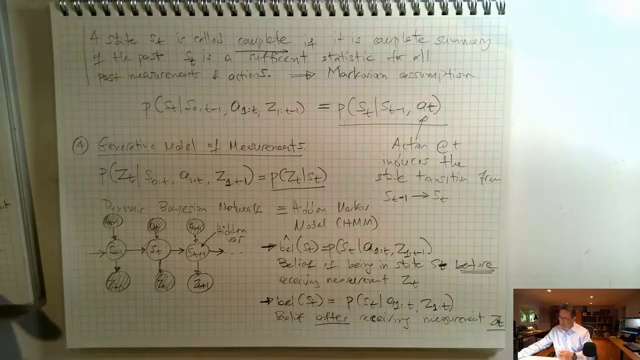 A state St is called complete if it is complete summary
of the past St is a sufficient statistic for all
past measurements & actions. ⟹ Markovian assumption
p(St | S0:t-1, a1:t, z1:t-1) = p(St | St-1, at)
④ Generative Model of Measurements
Action @ t
induces the
state transition from
St-1 → St
p(Zt | S0:t, a1:t, z1:t-1) = p(Zt | St)
Dynamic Bayesian Networks ≡ Hidden Markov
Model (HMM)
hidden
var
St-1 St St+1 ...
Zt-1 Zt Zt+1
→ bel(St) = p(St | a1:t, z1:t-1)
Belief of being in state St before
receiving measurement Zt
→ bel(St) = p(St | a1:t, z1:t)
Belief after receiving measurement Zt